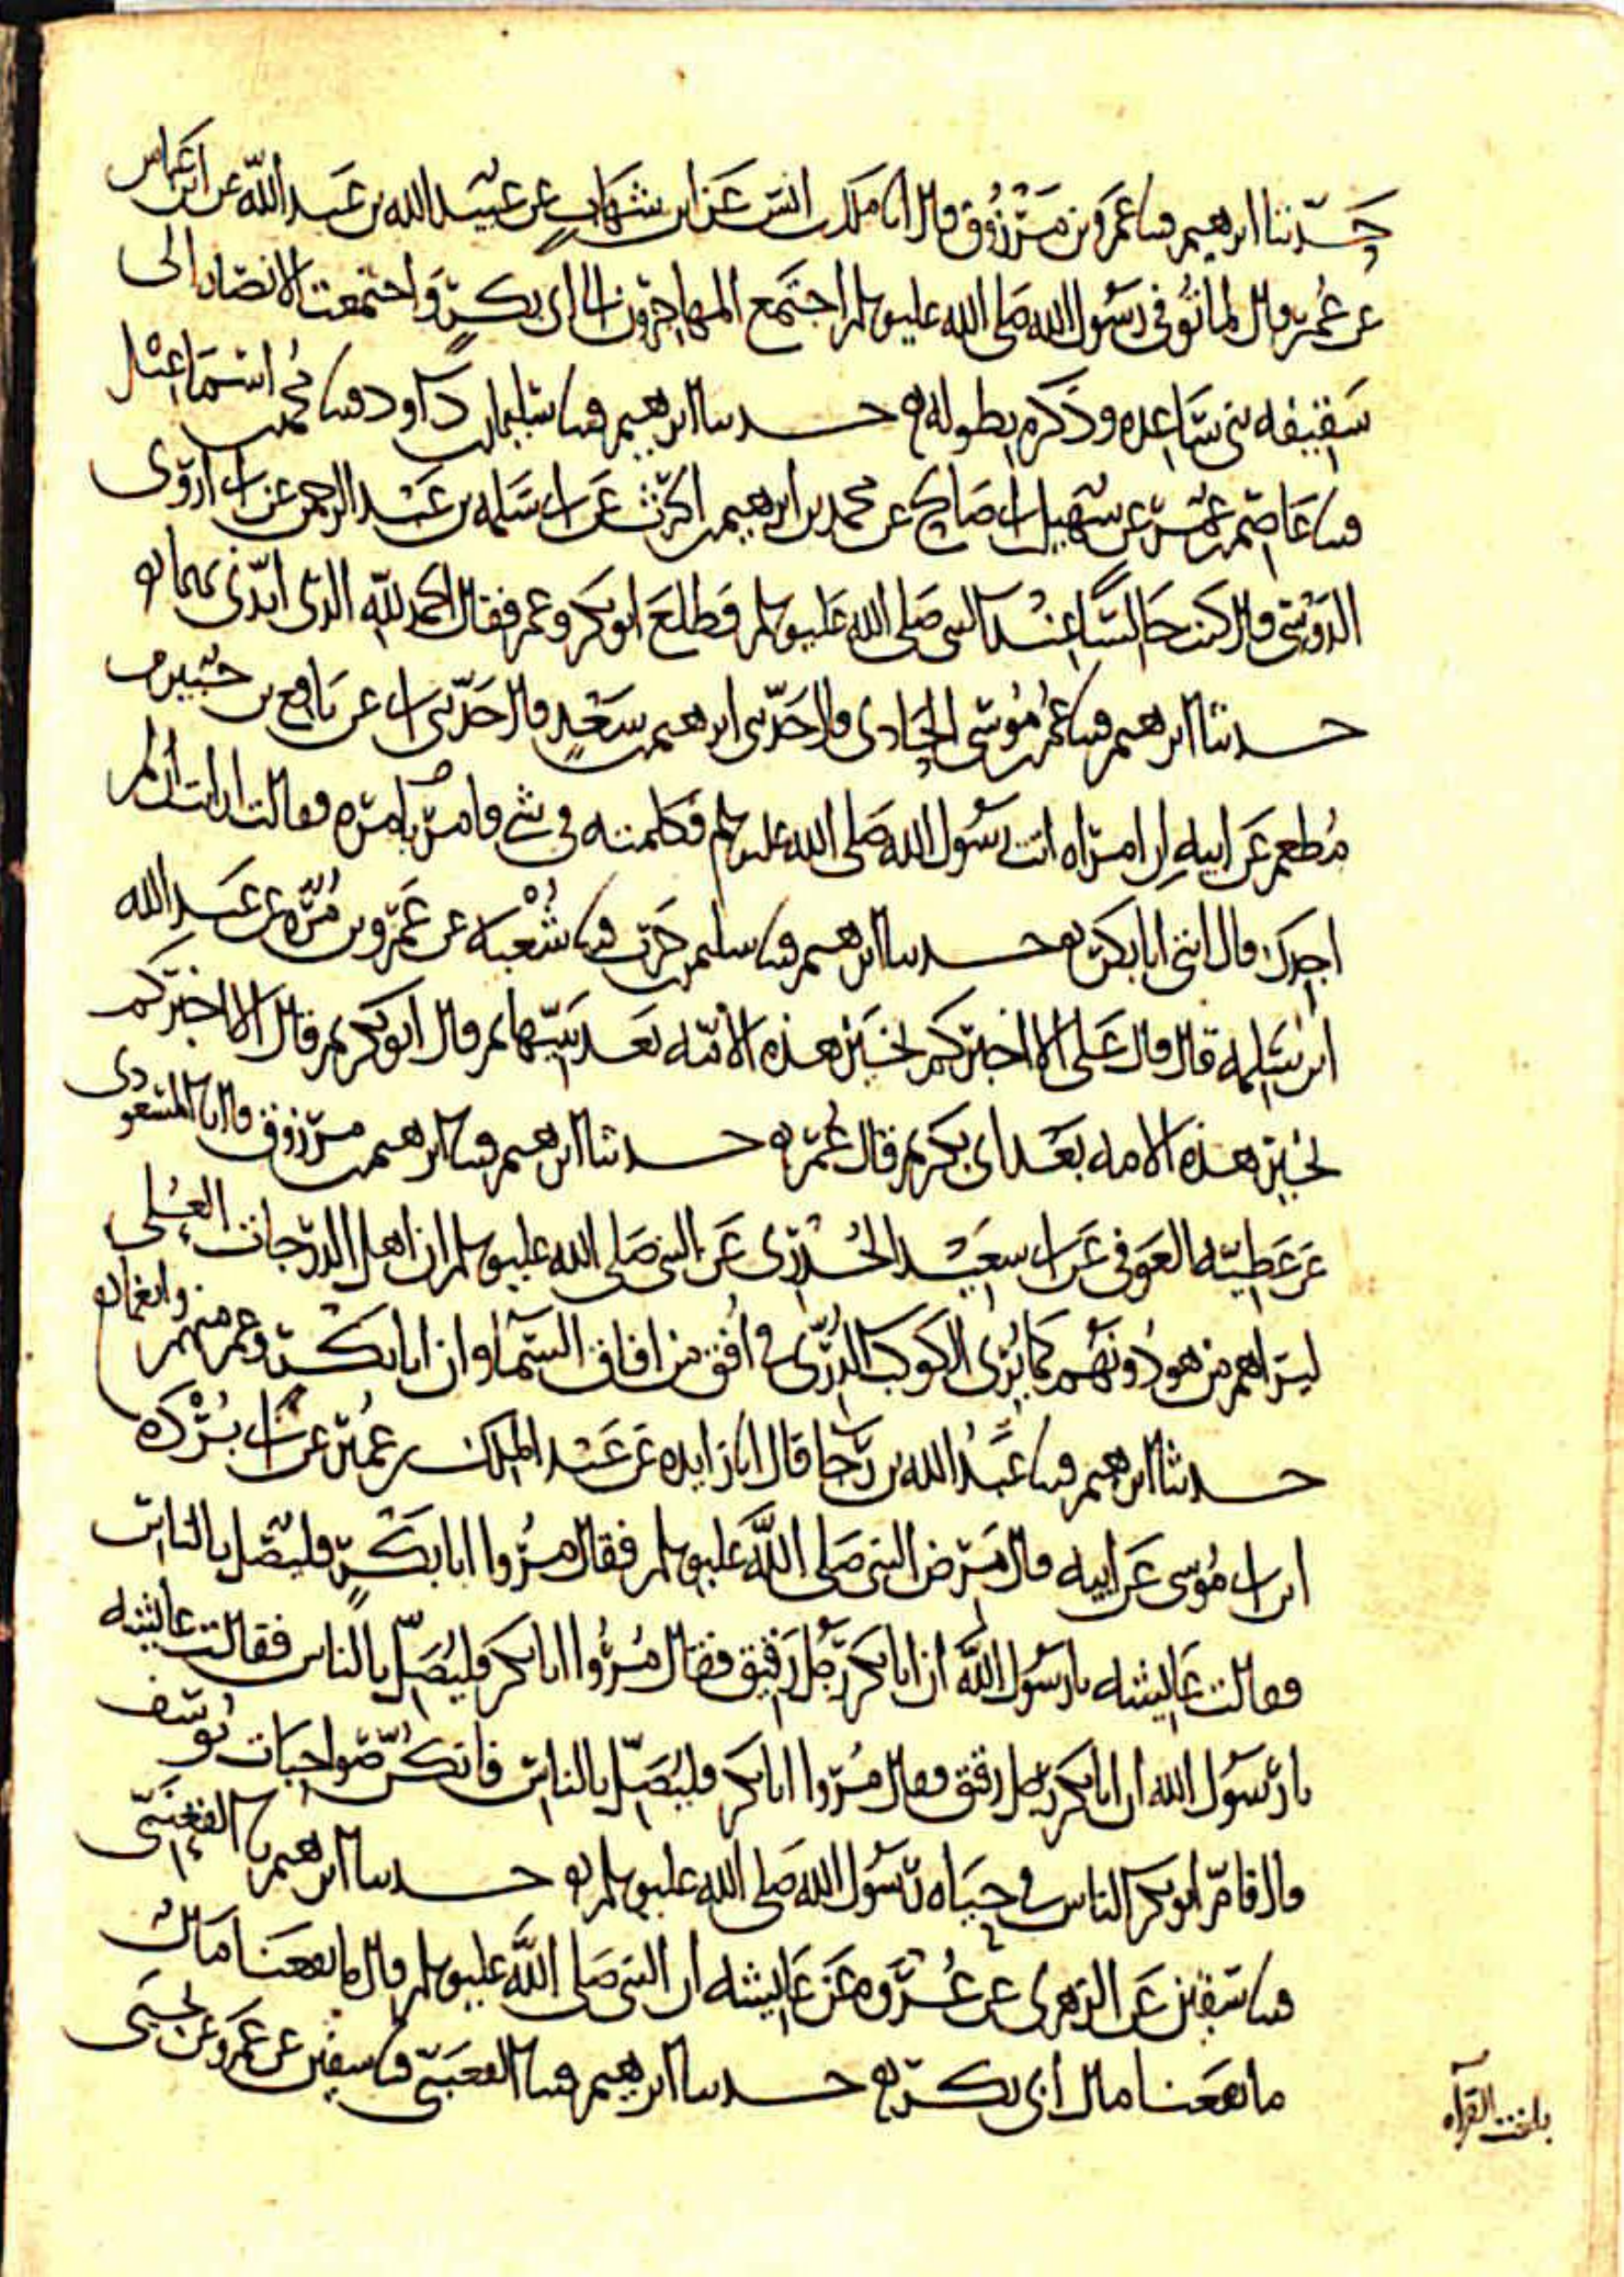 حدثنا ابرهيم قثنا عمرو بن مرزوق قال انا ملك بن انس عن ابن شهاب عن عبيد الله بن عبد الله عن ابن عباس
عن عمر قال لما توفى رسول الله صلى الله عليه وسلم اجتمع المهاجرون الى ابى بكر واجتمعت الانصار الى
سقيفه بنى ساعده وذكره بطوله حدثنا ابرهيم قثنا سليمان بن داود قثنا محمد بن اسماعيل
قثنا عاصم بن عمر عن سهيل بن ابى صالح عن محمد بن ابرهيم بن الحرث عن ابى سلمه بن عبد الرحمن عن ابى اروى
الدوسى قال كنت جالسا عند النبى صلى الله عليه وسلم فطلع ابو بكر وعمر فقال الحمد لله الذى ايدنى بهما
حدثنا ابرهيم قثنا محمد بن موسى الحادى قال حدثنى ابرهيم بن سعد قال حدثنى ابى عن نافع بن جبير بن
مطعم عن ابيه ان امراه اتت رسول الله صلى الله عليه وسلم فكلمته فى شى فامر بامره فقالت ارايت ان لم
اجدك قال ائتى ابا بكر حدثنا ابرهيم قثنا سليمن بن حرب قثنا شعبه عن عمرو بن مره عن عبد الله
ابن سلمه قال قال على الا اخبركم بخير هذه الامه بعد نبيها ثم قال ابو بكر ثم قال الا اخبركم
بخير هذه الامه بعد ابى بكر ثم قال عمر حدثنا ابرهيم قثنا ابرهيم بن مرزوق قال انا المسعودى
عن عطيه العوفى عن ابى سعيد الخدرى عن النبى صلى الله عليه وسلم ان اهل الدرجات العلى
ليراهم من هو دونهم كما يرى الكوكب الدرى فى افق من افاق السماء وان ابا بكر وعمر منهم
وانعما
حدثنا ابرهيم قثنا عبد الله بن رجا قال انا زايده عن عبد الملك بن عمير عن ابى برده
ابن ابى موسى عن ابيه قال مرض النبى صلى الله عليه وسلم فقال مروا ابا بكر فليصل بالناس
فقالت عايشه يا رسول الله ان ابا بكر رجل رقيق فقال مروا ابا بكر فليصل بالناس فقالت عايشه
يا رسول الله ان ابا بكر رجل رقيق فقال مروا ابا بكر فليصل بالناس فانكن صواحبات يوسف
قال فام ابو بكر الناس فى حياه رسول الله صلى الله عليه وسلم حدثنا ابرهيم نا القعنبى
قثنا سفين عن الزهرى عن عروه عن عايشه ان النبى صلى الله عليه وسلم قال ما نفعنا مال
ما نفعنا مال ابى بكر حدثنا ابرهيم قثنا القعنبى قثنا سفين عن عمرو عن يحيى
بلغت القراه